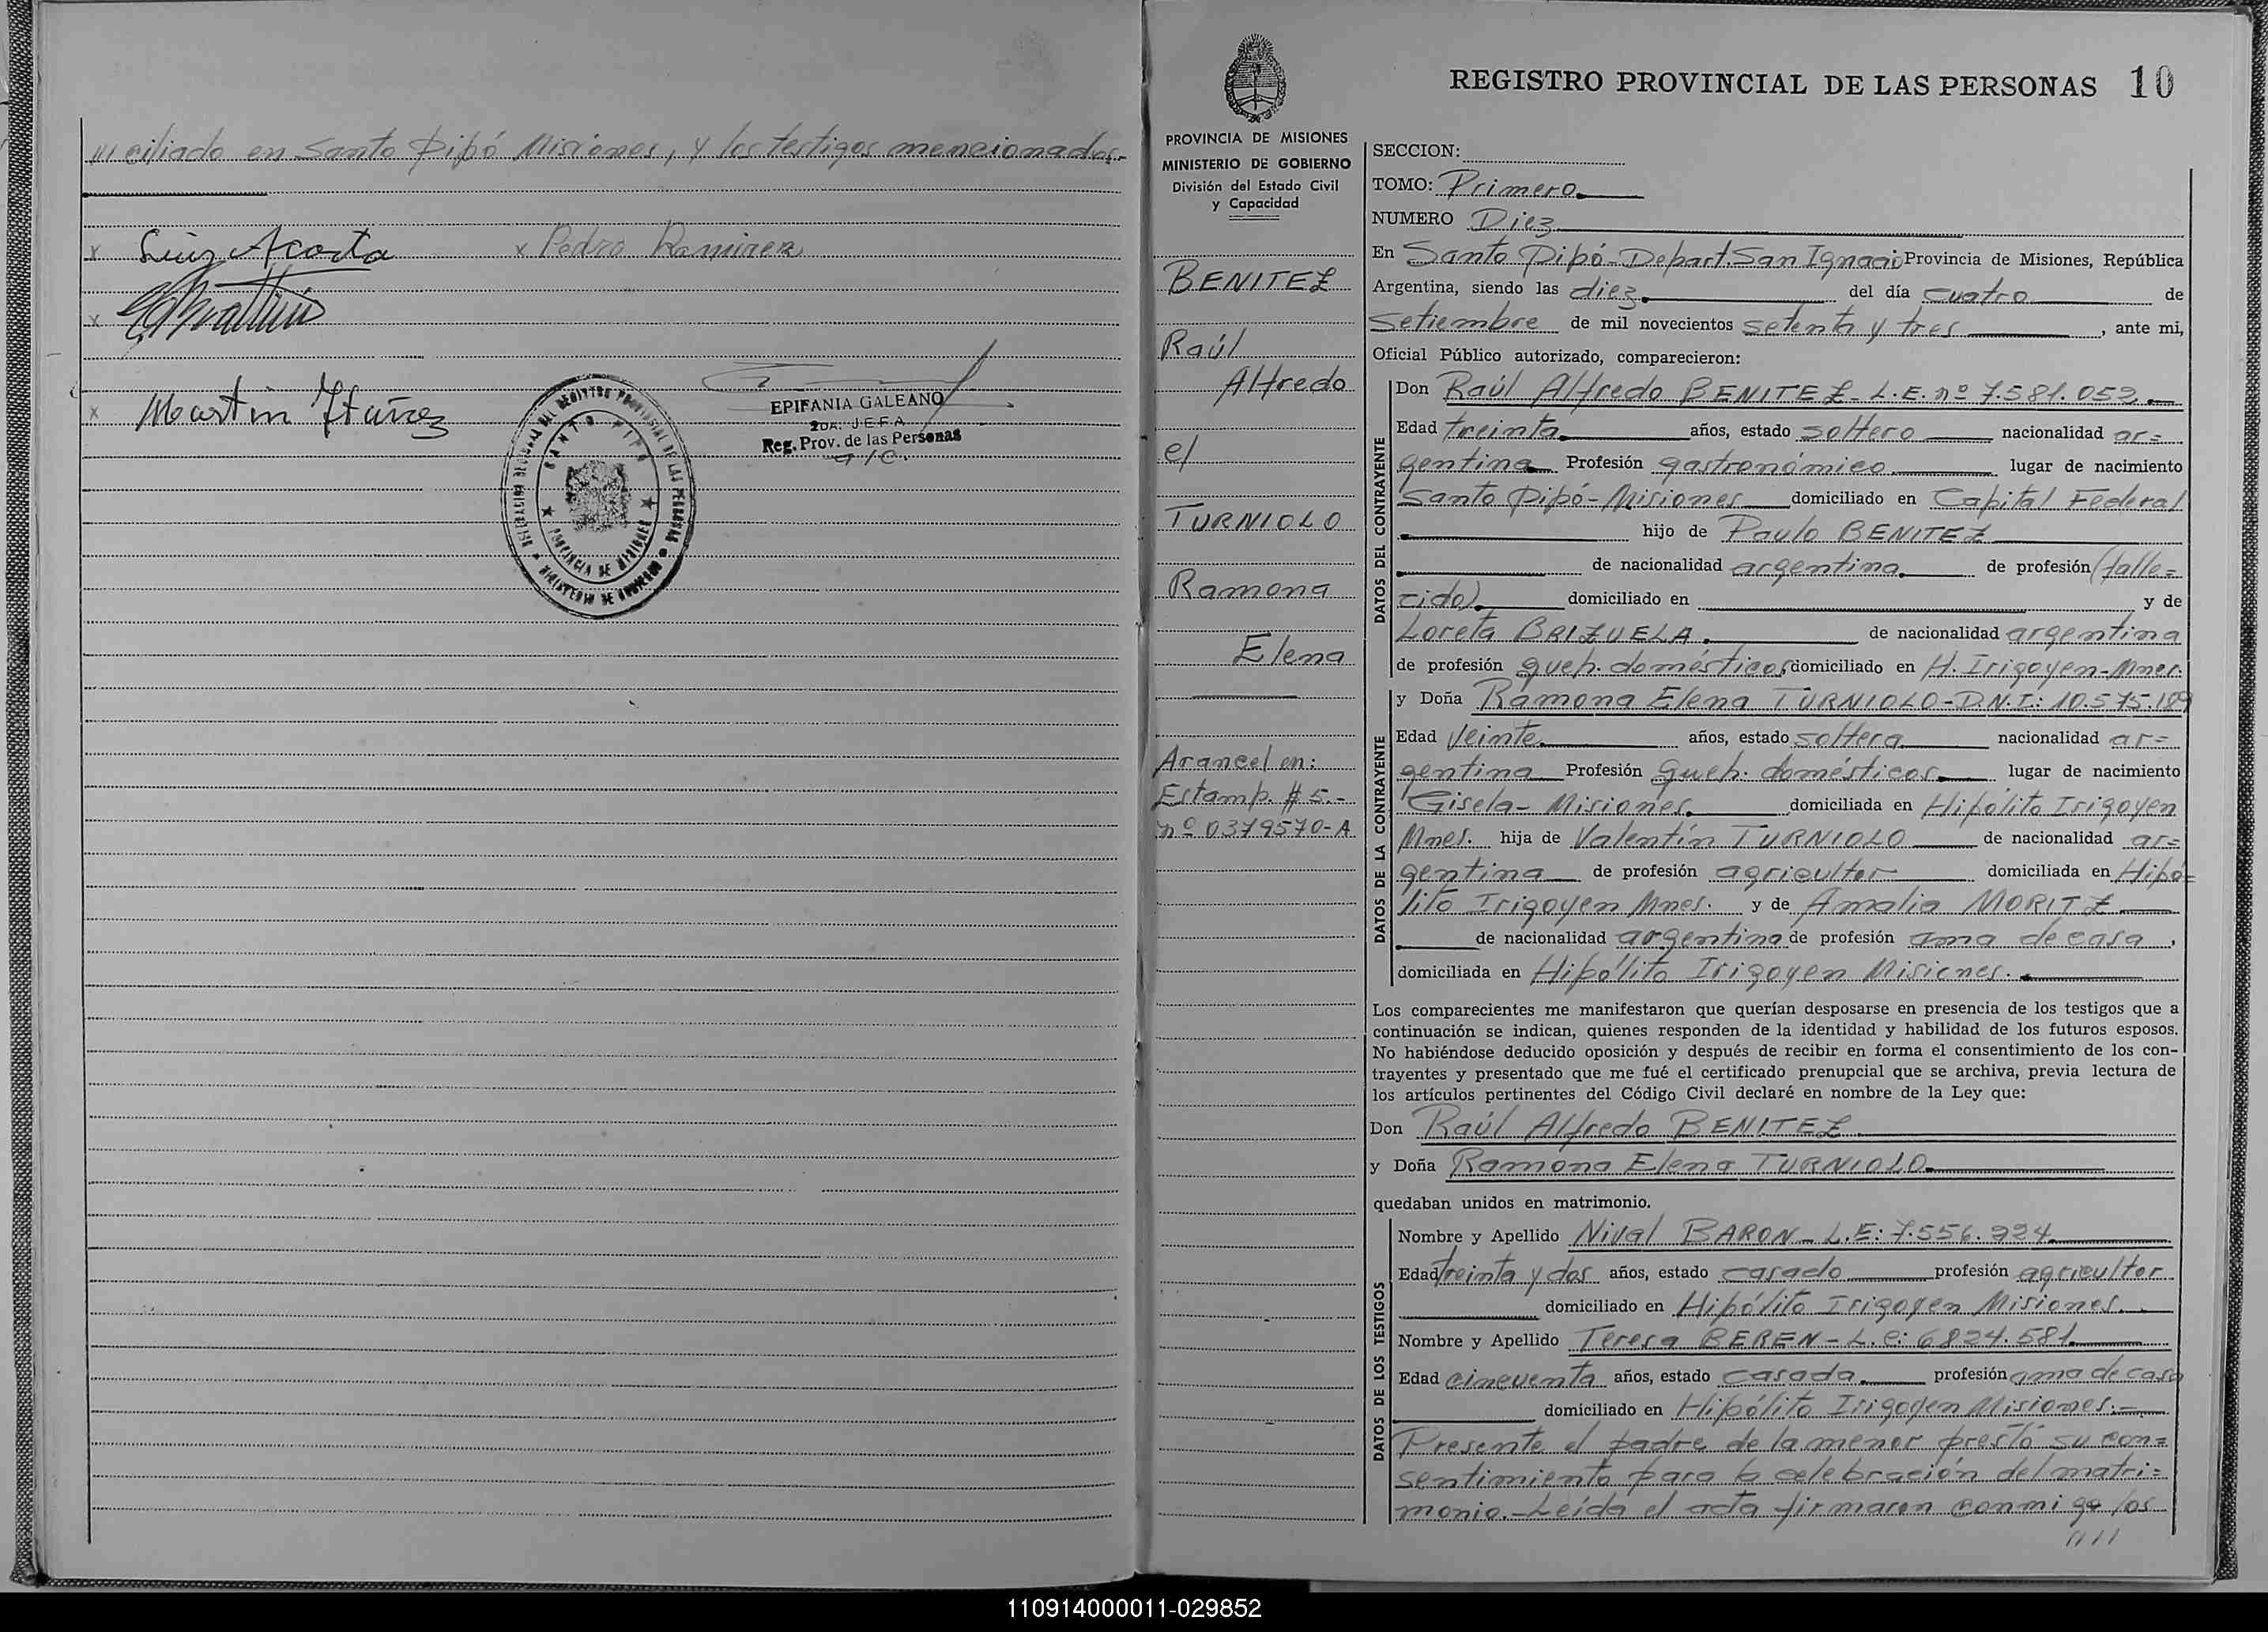 //// ciliado en Santo Pipó Misiones, y los testigos mencionados.-
x Luiz Acosta x Pedro Ramirez
x
x Martin Ifañez
DELEGACION REGIONAL DEL REGISTRO PROVINCIAL DE LAS PERSONAS
SANTO PIPO
PROVINCIA DE MISIONES
MINISTERIO DE GOBIERNO
EPIFANIA GALEANO
2DA. JEFA
Reg. Prov. de las Personas
a/c.
PROVINCIA DE MISIONES
MINISTERIO DE GOBIERNO
División del Estado Civil
y Capacidad
BENITEZ
Raúl
Alfredo
e/
TURNIOLO
Ramona
Elena
Arancel en:
Estamp. $ 5.-
nº 0379570-A
REGISTRO PROVINCIAL DE LAS PERSONAS 10
SECCION:
TOMO: Primero
NUMERO Diez
En Santo Pipó-Depart. San Ignacio Provincia de Misiones, República
Argentina, siendo las diez del día cuatro de
Setiembre de mil novecientos setenta y tres, ante mi,
Oficial Público autorizado, comparecieron:
DATOS DEL CONTRAYENTE
Don Raúl Alfredo BENITEZ- L.E. nº 7.581.052
Edad treinta años, estado soltero nacionalidad ar=
gentina Profesión gastronómico lugar de nacimiento
Santo Pipó-Misiones domiciliado en Capital Federal
hijo de Paulo BENITEZ
de nacionalidad argentina de profesión (falle=
cido) domiciliado en y de
Loreta BRIZUELA. de nacionalidad argentina
de profesión queh. domésticos domiciliado en H. Irigoyen-Mnes.
DATOS DE LA CONTRAYENTE
y Doña Ramona Elena TURNIOLO-D.N.I.: 10.575.189
Edad Veinte años, estado soltera nacionalidad ar=
gentina Profesión Queh. domésticos lugar de nacimiento
Gisela- Misiones domiciliada en Hipólito Irigoyen
Mnes. hija de Valentín TURNIOLO de nacionalidad ar=
gentina de profesión agricultor domiciliada en Hipó=
lito Irigoyen Mnes. y de Amalia MORITZ
de nacionalidad argentina de profesión ama de casa,
domiciliada en Hipólito Irigoyen Misiones.
Los comparecientes me manifestaron que querían desposarse en presencia de los testigos que a
continuación se indican, quienes responden de la identidad y habilidad de los futuros esposos.
No habiéndose deducido oposición y después de recibir en forma el consentimiento de los con-
trayentes y presentado que me fué el certificado prenupcial que se archiva, previa lectura de
los artículos pertinentes del Código Civil declaré en nombre de la Ley que:
Don Raúl Alfredo BENITEZ
y Doña Ramona Elena TURNIOLO
quedaban unidos en matrimonio.
DATOS DE LOS TESTIGOS
Nombre y Apellido Nival BARON- L.E: 7.556.924
Edad treinta y dos años, estado casado profesión agricultor
domiciliado en Hipólito Irigoyen Misiones.
Nombre y Apellido Teresa BEREN- L.C: 6824.581
Edad cincuenta años, estado casada profesión ama de casa
domiciliado en Hipólito Irigoyen Misiones.-
Presente el padre de la menor prestó su con=
sentimiento para la celebración del matri=
monio.-Leída el acta firmaron conmigo los
////
110914000011-029852